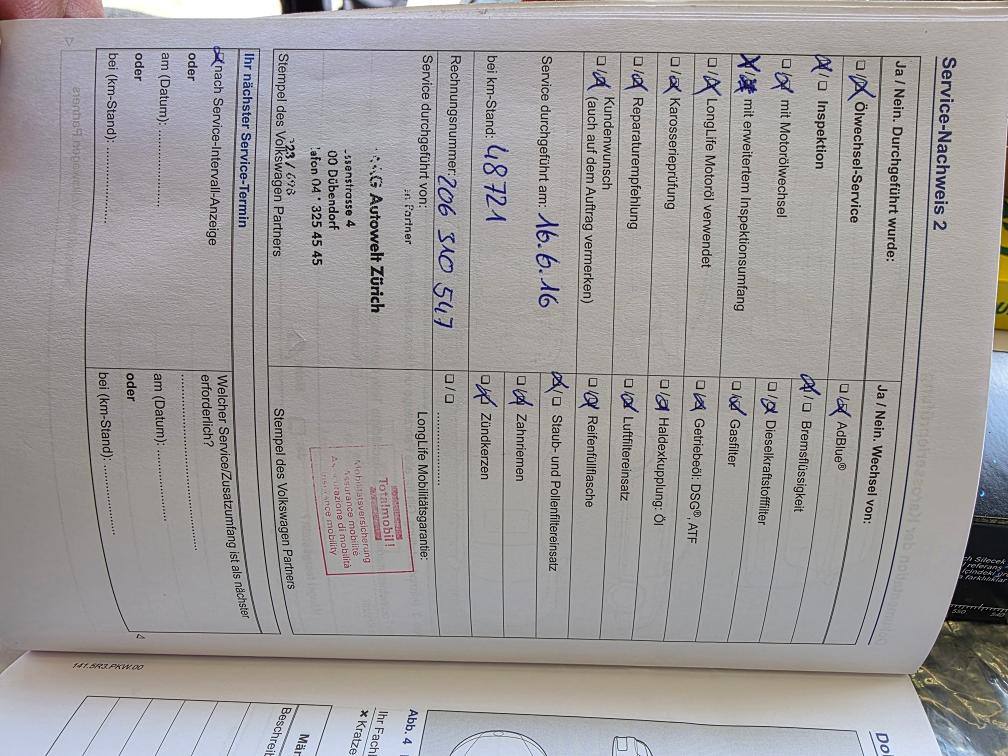 Service-Nachweis 2
Ja / Nein. Durchgeführt wurde:
☐/☒ Ölwechsel-Service
☒/☐ Inspektion
☐/☒ mit Motorölwechsel
mit erweitertem Inspektionsumfang
☐/☒ LongLife Motoröl verwendet
☐/☒ Karosserieprüfung
☐/☒ Reparaturempfehlung
☐/☒ Kundenwunsch
(auch auf dem Auftrag vermerken)
Service durchgeführt am: 16.6.16
bei km-Stand: 48721
Rechnungsnummer: 206 310 547
Service durchgeführt von:
Partner
Autowelt Zürich
ssenstrasse 4
00 Dübendorf
325 45 45
Stempel des Volkswagen Partners
Ja / Nein. Wechsel von:
☐/☒ AdBlue®
☒/☐ Bremsflüssigkeit
☐/☒ Dieselkraftstofffilter
☐/☒ Gasfilter
☐/☒ Getriebeöl: DSG®, ATF
☐/☒ Haldexkupplung: Öl
☐/☒ Luftfiltereinsatz
☐/☒ Reifenfüllflasche
☒/☐ Staub- und Pollenfiltereinsatz
☐/☒ Zahnriemen
☐/☒ Zündkerzen
☐/☐ ....................
LongLife Mobilitätsgarantie:
Totalmobil!
Mobilitätsversicherung
Assurance mobilité
Assicurazione di mobilità
Insurance mobility
Stempel des Volkswagen Partners
Ihr nächster Service-Termin
☒ nach Service-Intervall-Anzeige
oder
am (Datum): ..................
oder
bei (km-Stand): ..................
Welcher Service/Zusatzumfang ist als nächster
erforderlich?
am (Datum): ..................
oder
bei (km-Stand): ..................
141.5R3.PKW.00
Abb. 4
Ihr Fach
× Kratze